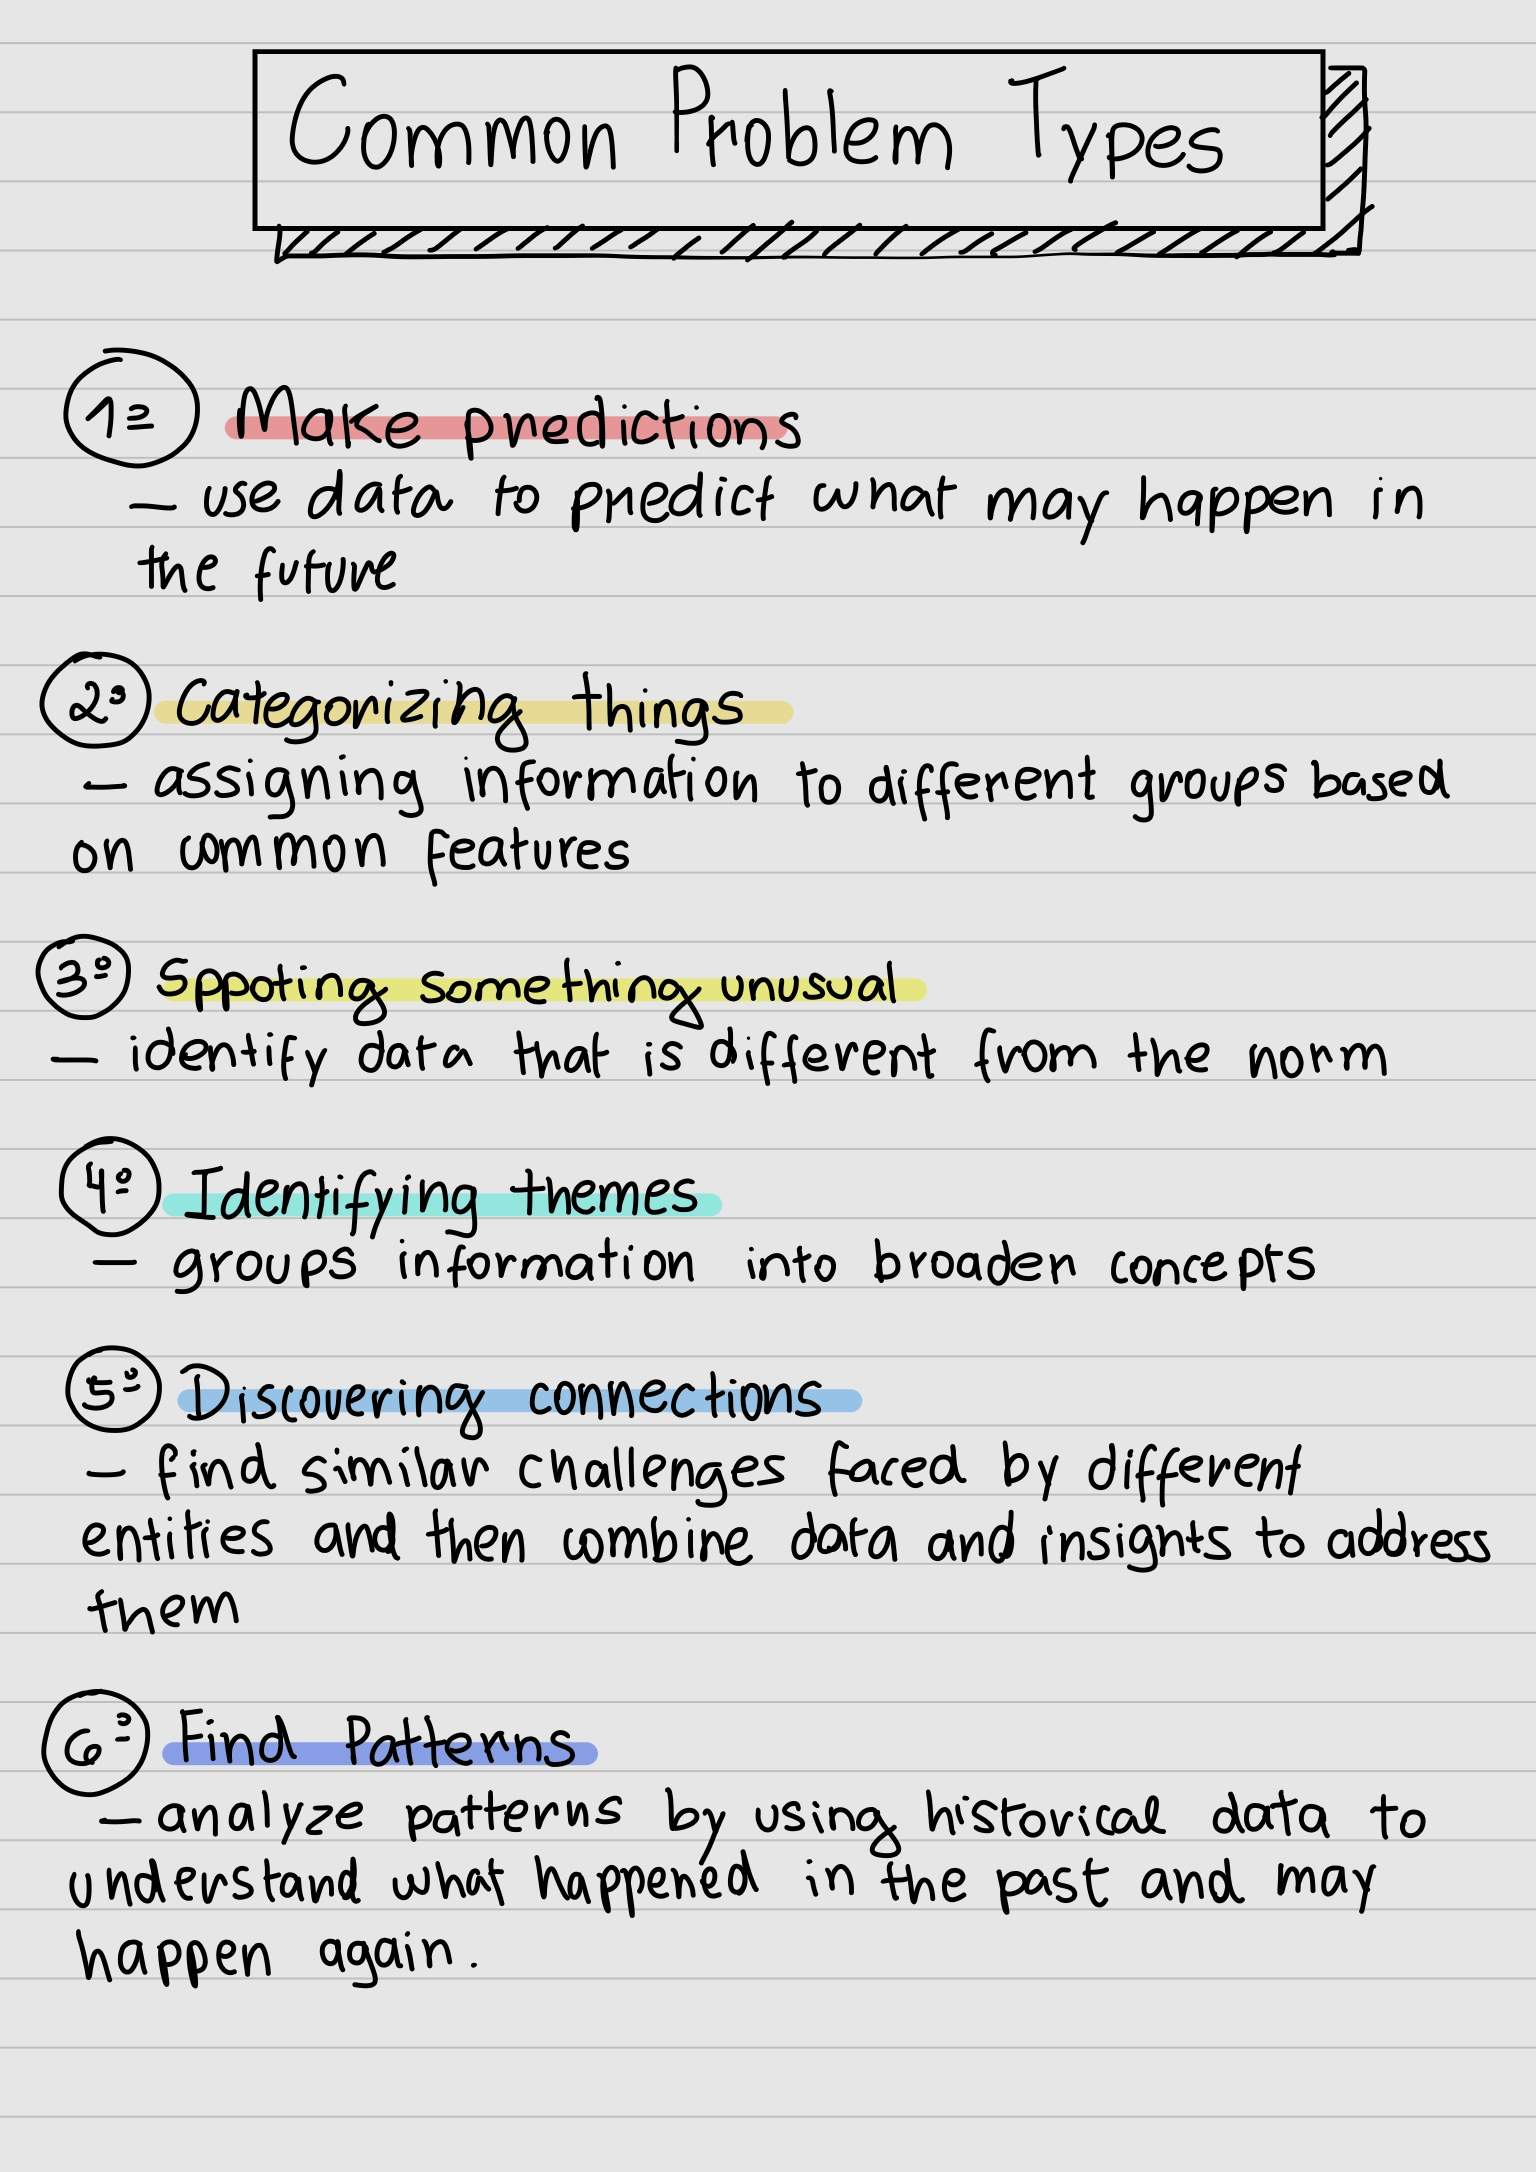 Common Problem Types
1º Make predictions
– use data to predict what may happen in
the future
2º Categorizing things
– assigning information to different groups based
on common features
3º Sppoting something unusual
– identify data that is different from the norm
4º Identifying themes
– groups information into broader concepts
5º Discovering connections
– find similar challenges faced by different
entities and then combine data and insights to address
them
6º Find Patterns
– analyze patterns by using historical data to
understand what happened in the past and may
happen again.